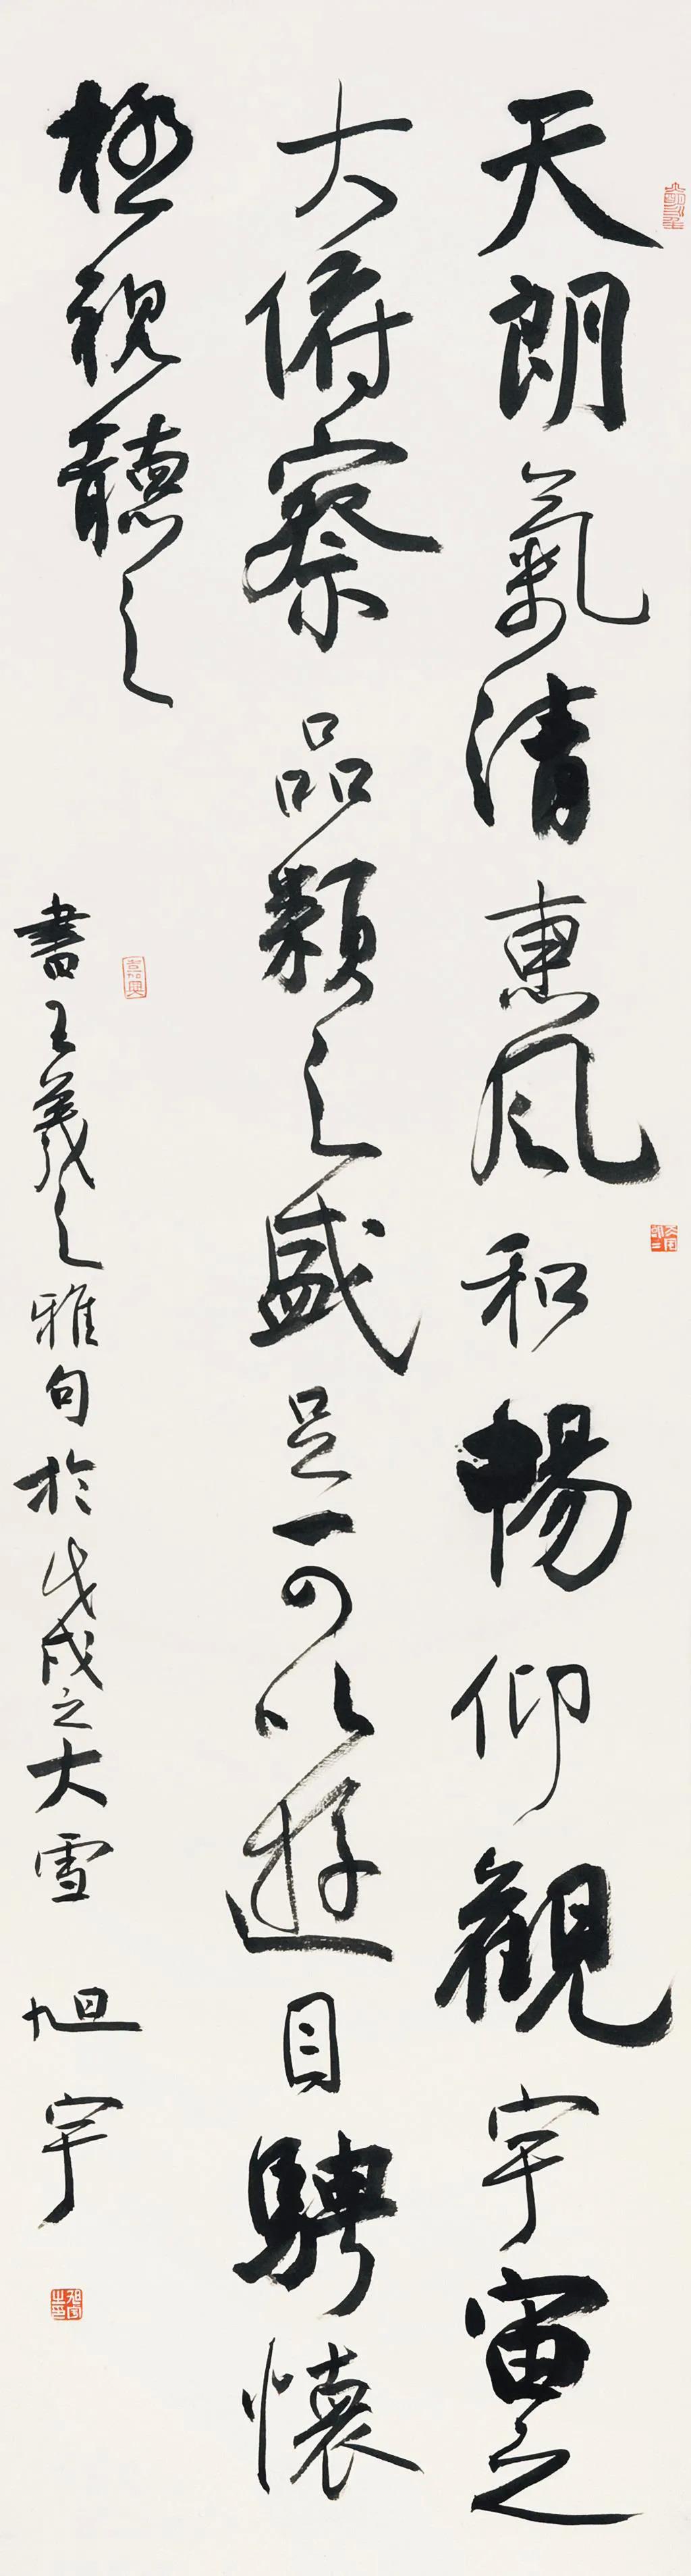 天朗氣清惠風和暢仰觀宇宙之
大俯察品類之盛足可以遊目騁懷
極視聽之
書王羲之雅句於戊戌之大雪 旭宇
旭宇之印